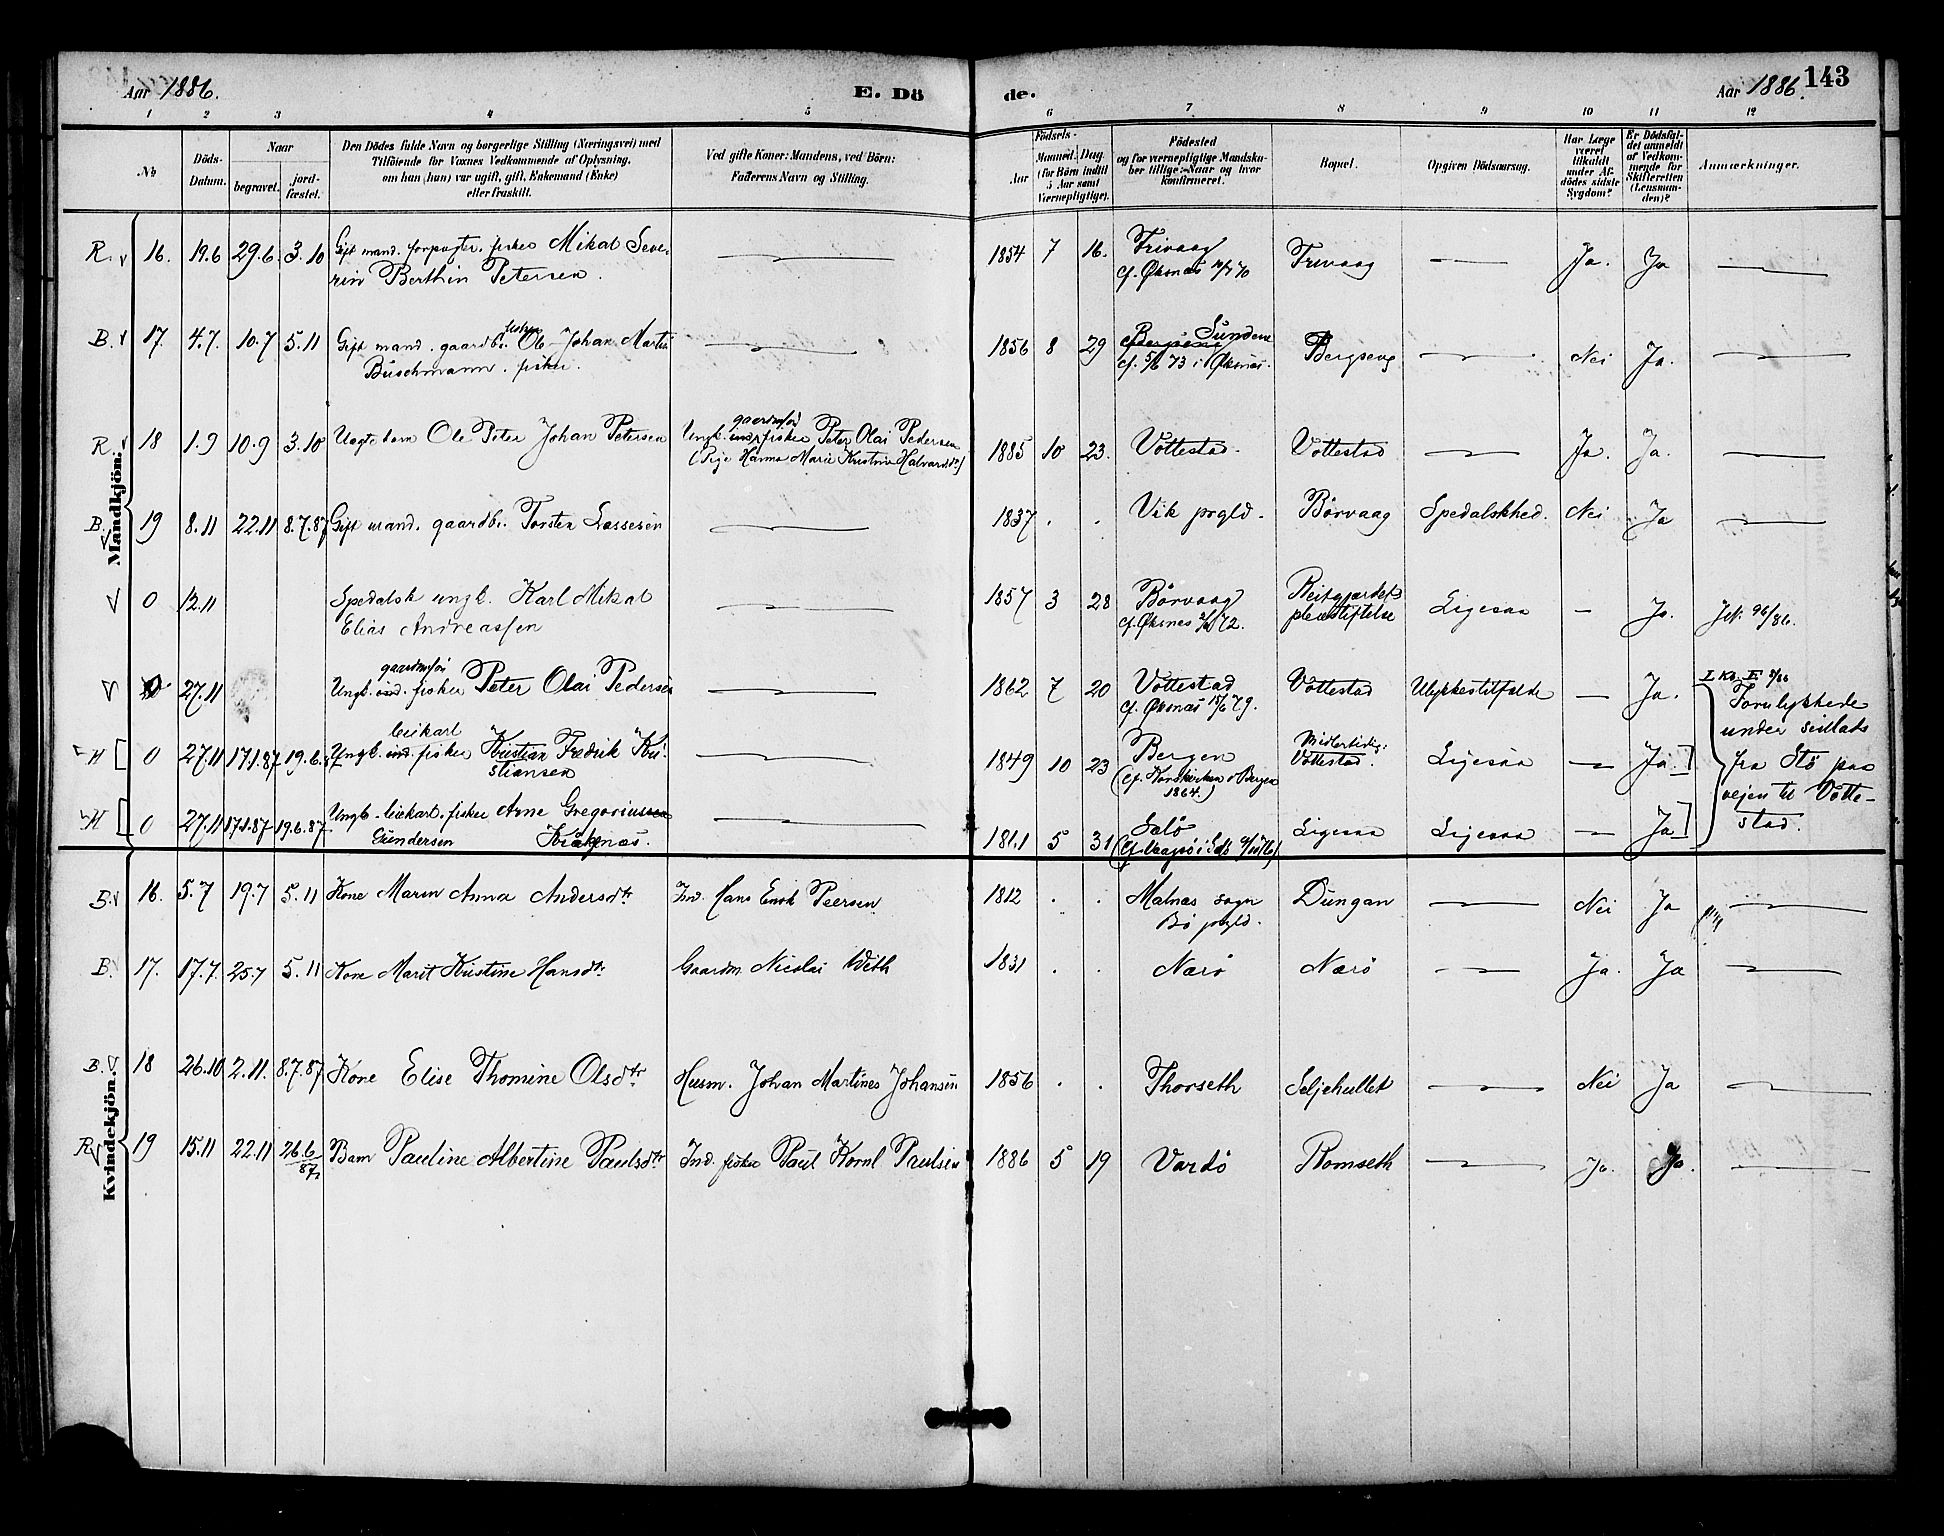 Aar 1886.
E. Dö
de.
Aar 1886.
143
1 2 3 4 5 6 7 8 9 10 11 12
№
Döds-Datum.
Naar
begravet.
jord-fæstet.
Den Dödes fulde Navn og borgerlige Stilling (Næringsvei) med
Tilföiende for Voxnes Vedkommende af Oplysning,
om han (hun) var ugift, gift, Enkemand (Enke)
eller fraskilt.
Ved gifte Koner: Mandens, ved Börn:
Faderens Navn og Stilling.
Födsels-
Aar
Maaned. Dag
(for Börn indtil
5 Aar samt
Værnepligtige).
Födested
og for værnepligtige Mandska-
ber tillige: Naar og hvor
konfirmeret.
Bopæl.
Opgiven Dödsaarsag.
Har Læge
været
tilkaldt
under Af-
dödes sidste
Sygdom?
Er Dödsfal-
det anmeldt
af Vedkom-
mende for
Skifteretten
(Lensman-
den)?
Anmærkninger.
Mandkjön.
R. 16. 19.6 29.6 3.10 Gift mand. forpagter. fisker Mikal Seve-
rin Berthin Petersen. 1854 7 16. Trivaag
cf. Øksnæs 70 Trivaag Ja. Ja
B. 17. 4.7. 10.7 5.11 Gift mand. gaardbr. fisker Ole Johan Martin
Buschmann. fisker. 1856 8 29 Bergseng Sundene
cf. 5/6 73 i Øksnæs. Bergseng Nei Ja.
R. 18 1.9 10.9 3.10 Uægte barn Ole Peter Johan Petersen Ungk. gaardmsøn ind. fisker Peter Olai Pedersen
(Pige Hanna Marie Kristine Halvardsdtr) 1885 10 23. Vottestad. Vottestad Ja. Ja.
B. 19 8.11 22.11 8.7.87 Gift mand. gaardbr. Torsten Lassesen 1837 . . Vik prgld. Börvaag Spedalskhed. Nei Ja
0 12.11 Spedalsk ungk. Karl Mikal
Elias Andreassen 1857 3 28 Börvaag
cf. Øksnes 72. Reitgjærdets
pleiestiftelse Ligesaa - Ja. 96/86.
0 27.11 gaardmsøn
Ungk. ind. fisker Peter Olai Pedersen 1862 7 20 Vottestad
cf. Øksnæs 15/6 79. Vottestad Ulykkestilfælde - Ja.
H 0 27.11 17.1.87 19.6.87 leiekarl
Ungk. ind. fisker Kristian Fredrik Kri-
stiansen 1849 10 23 Bergen
(cf. Korskirken i Bergen
1864.) Midlertidig:
Vottestad. Ligesaa - Ja.
H 0 27.11 17.1.87 19.6.87 Ungk. leiekarl. fisker Arne Gregoriussen
Gundersen Kråkenæs. 1861 5 31 Selö Ligesaa Ligesaa - Ja
Forulykkede
under seillads
fra Stö paa
vejen til Votte-
stad.
Kvindekjön.
B. 16. 5.7 19.7 5.11 Kone Maren Anna Andersdtr Ind. Hans Enok Peersen 1812 . . Malnæs sogn
Bö prgld. Dungan Nei Ja
B. 17. 17.7. 25.7 5.11 Kone Marit Kristine Hansdtr Gaardm. Nicolai Weth 1831 . . Nærö Nærö Ja. Ja
B. 18 26.10 2.11. 8.7.87 Kone Elise Thomine Olsdtr Husm. Johan Martines Johansen 1856 . . Thorseth Seljehullet Nei Ja
R 19 15.11 22.11 26.6
87 Barn Pauline Albertine Paulsdtr Ind. fisker Paul Kornl. Paulsen 1886 5 19 Vardö Romseth Ja. Ja.